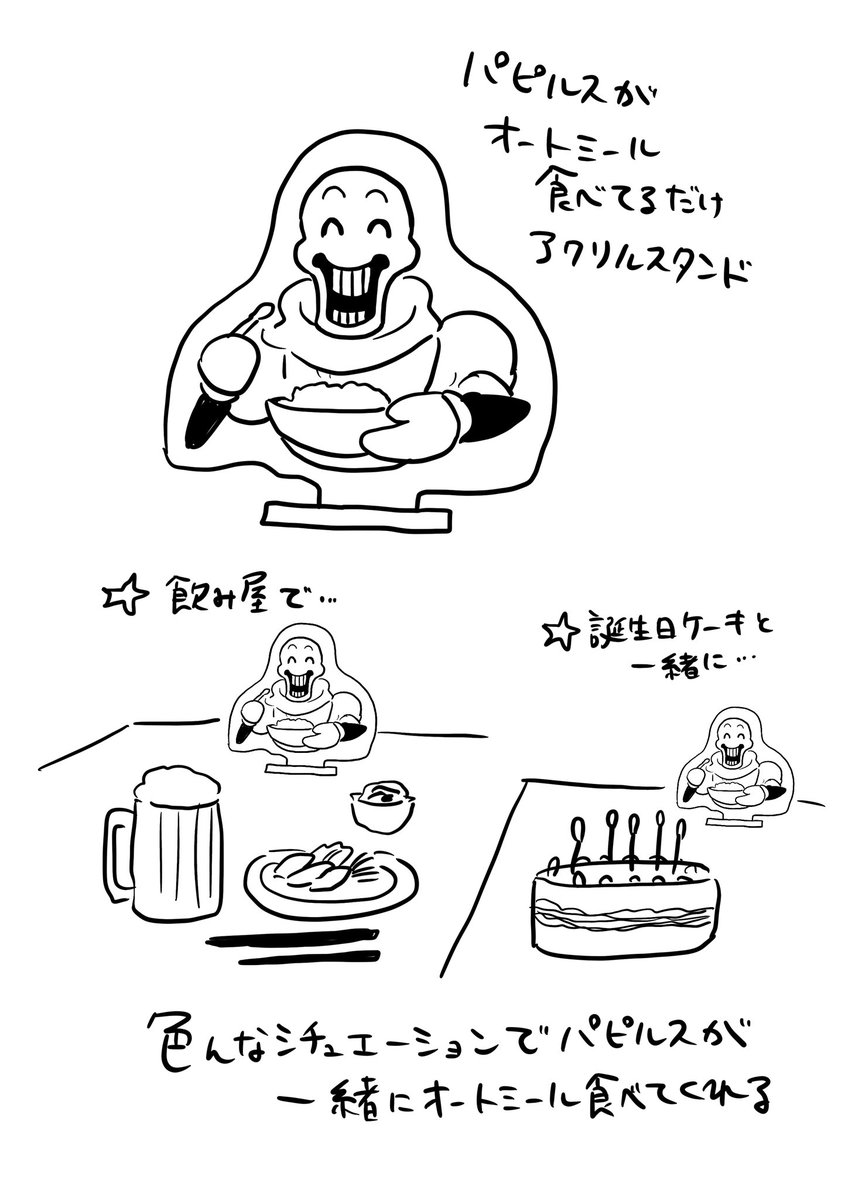 パピルスが
オートミール
食べてるだけ
アクリルスタンド
☆飲み屋で…
☆誕生日ケーキと
一緒に…
色んなシチュエーションでパピルスが
一緒にオートミール食べてくれる